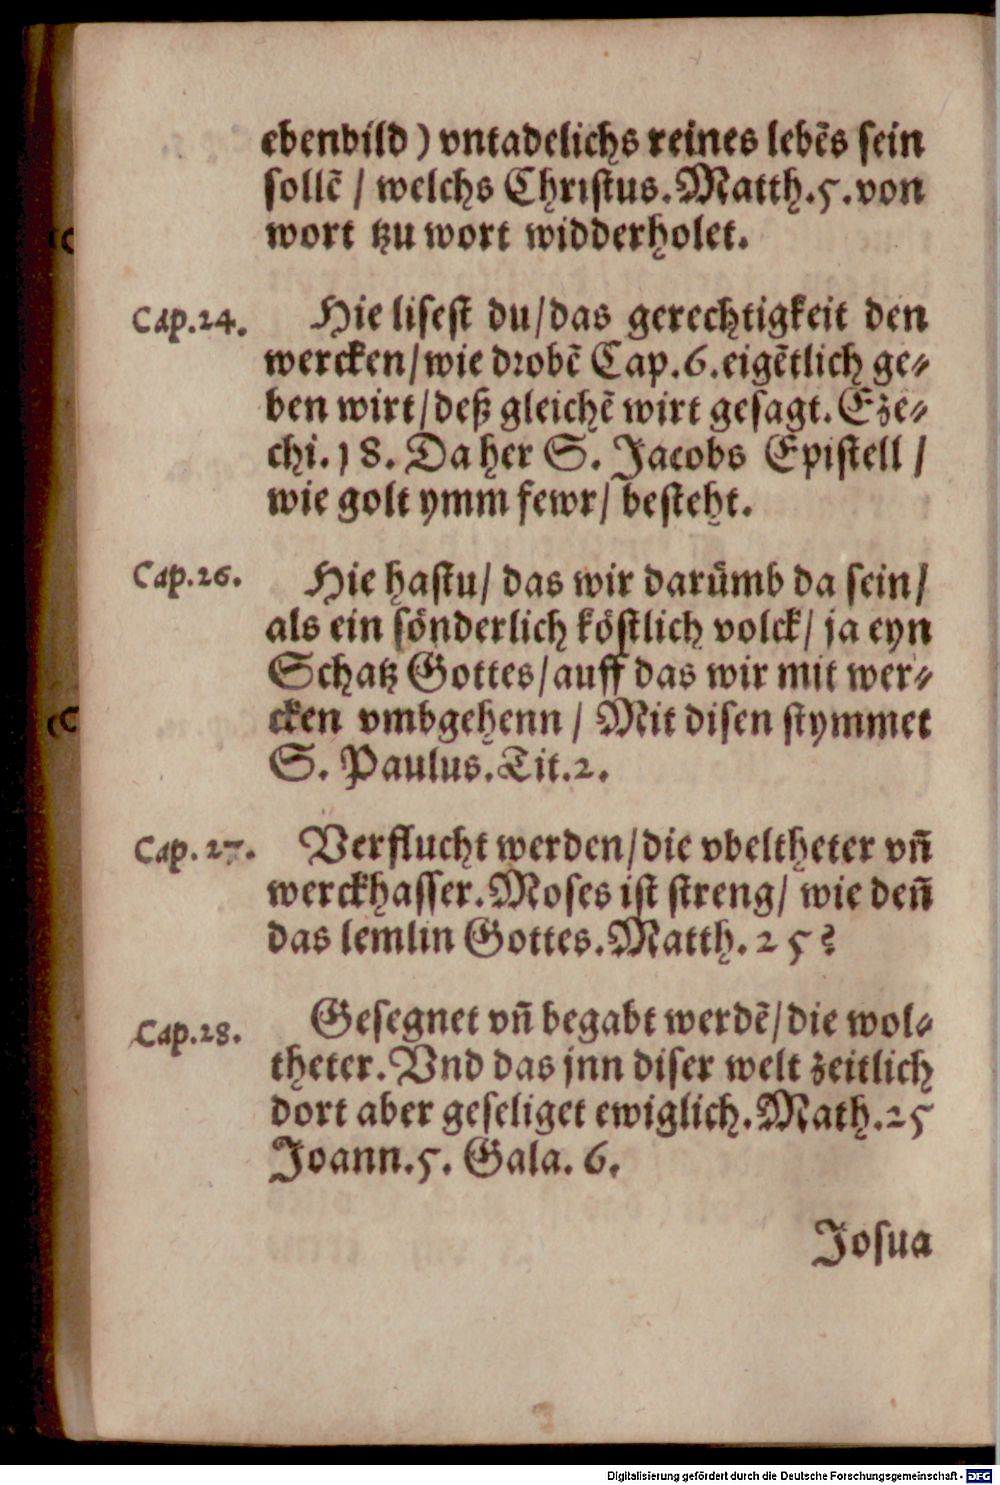 ebenbild) vntadelichs reines lebēs sein
sollē / welchs Christus. Matth. 5. von
wort tzu wort widderholet.
Cap. 24. Hie lisest du / das gerechtigkeit den
wercken / wie drobē Cap. 6. eigētlich ge-
ben wirt / deß gleichē wirt gesagt. Eze-
chi. 18. Da her S. Jacobs Epistell /
wie golt ymm fewr / besteht.
Cap. 26. Hie hastu / das wir darümb da sein /
als ein sönderlich köstlich volck / ja eyn
Schatz Gottes / auff das wir mit wer-
cken vmbgehenn / Mit disen stymmet
S. Paulus. Tit. 2.
Cap. 27. Verflucht werden / die vbeltheter vn̄
werckhasser. Moses ist streng / wie den̄
das lemlin Gottes. Matth. 25?
Cap. 28. Gesegnet vn̄ begabt werdē / die wol-
theter. Vnd das jnn diser welt zeitlich
dort aber geseliget ewiglich. Math. 25
Joann. 5. Gala. 6.
Josua
Digitalisierung gefördert durch die Deutsche Forschungsgemeinschaft - DFG